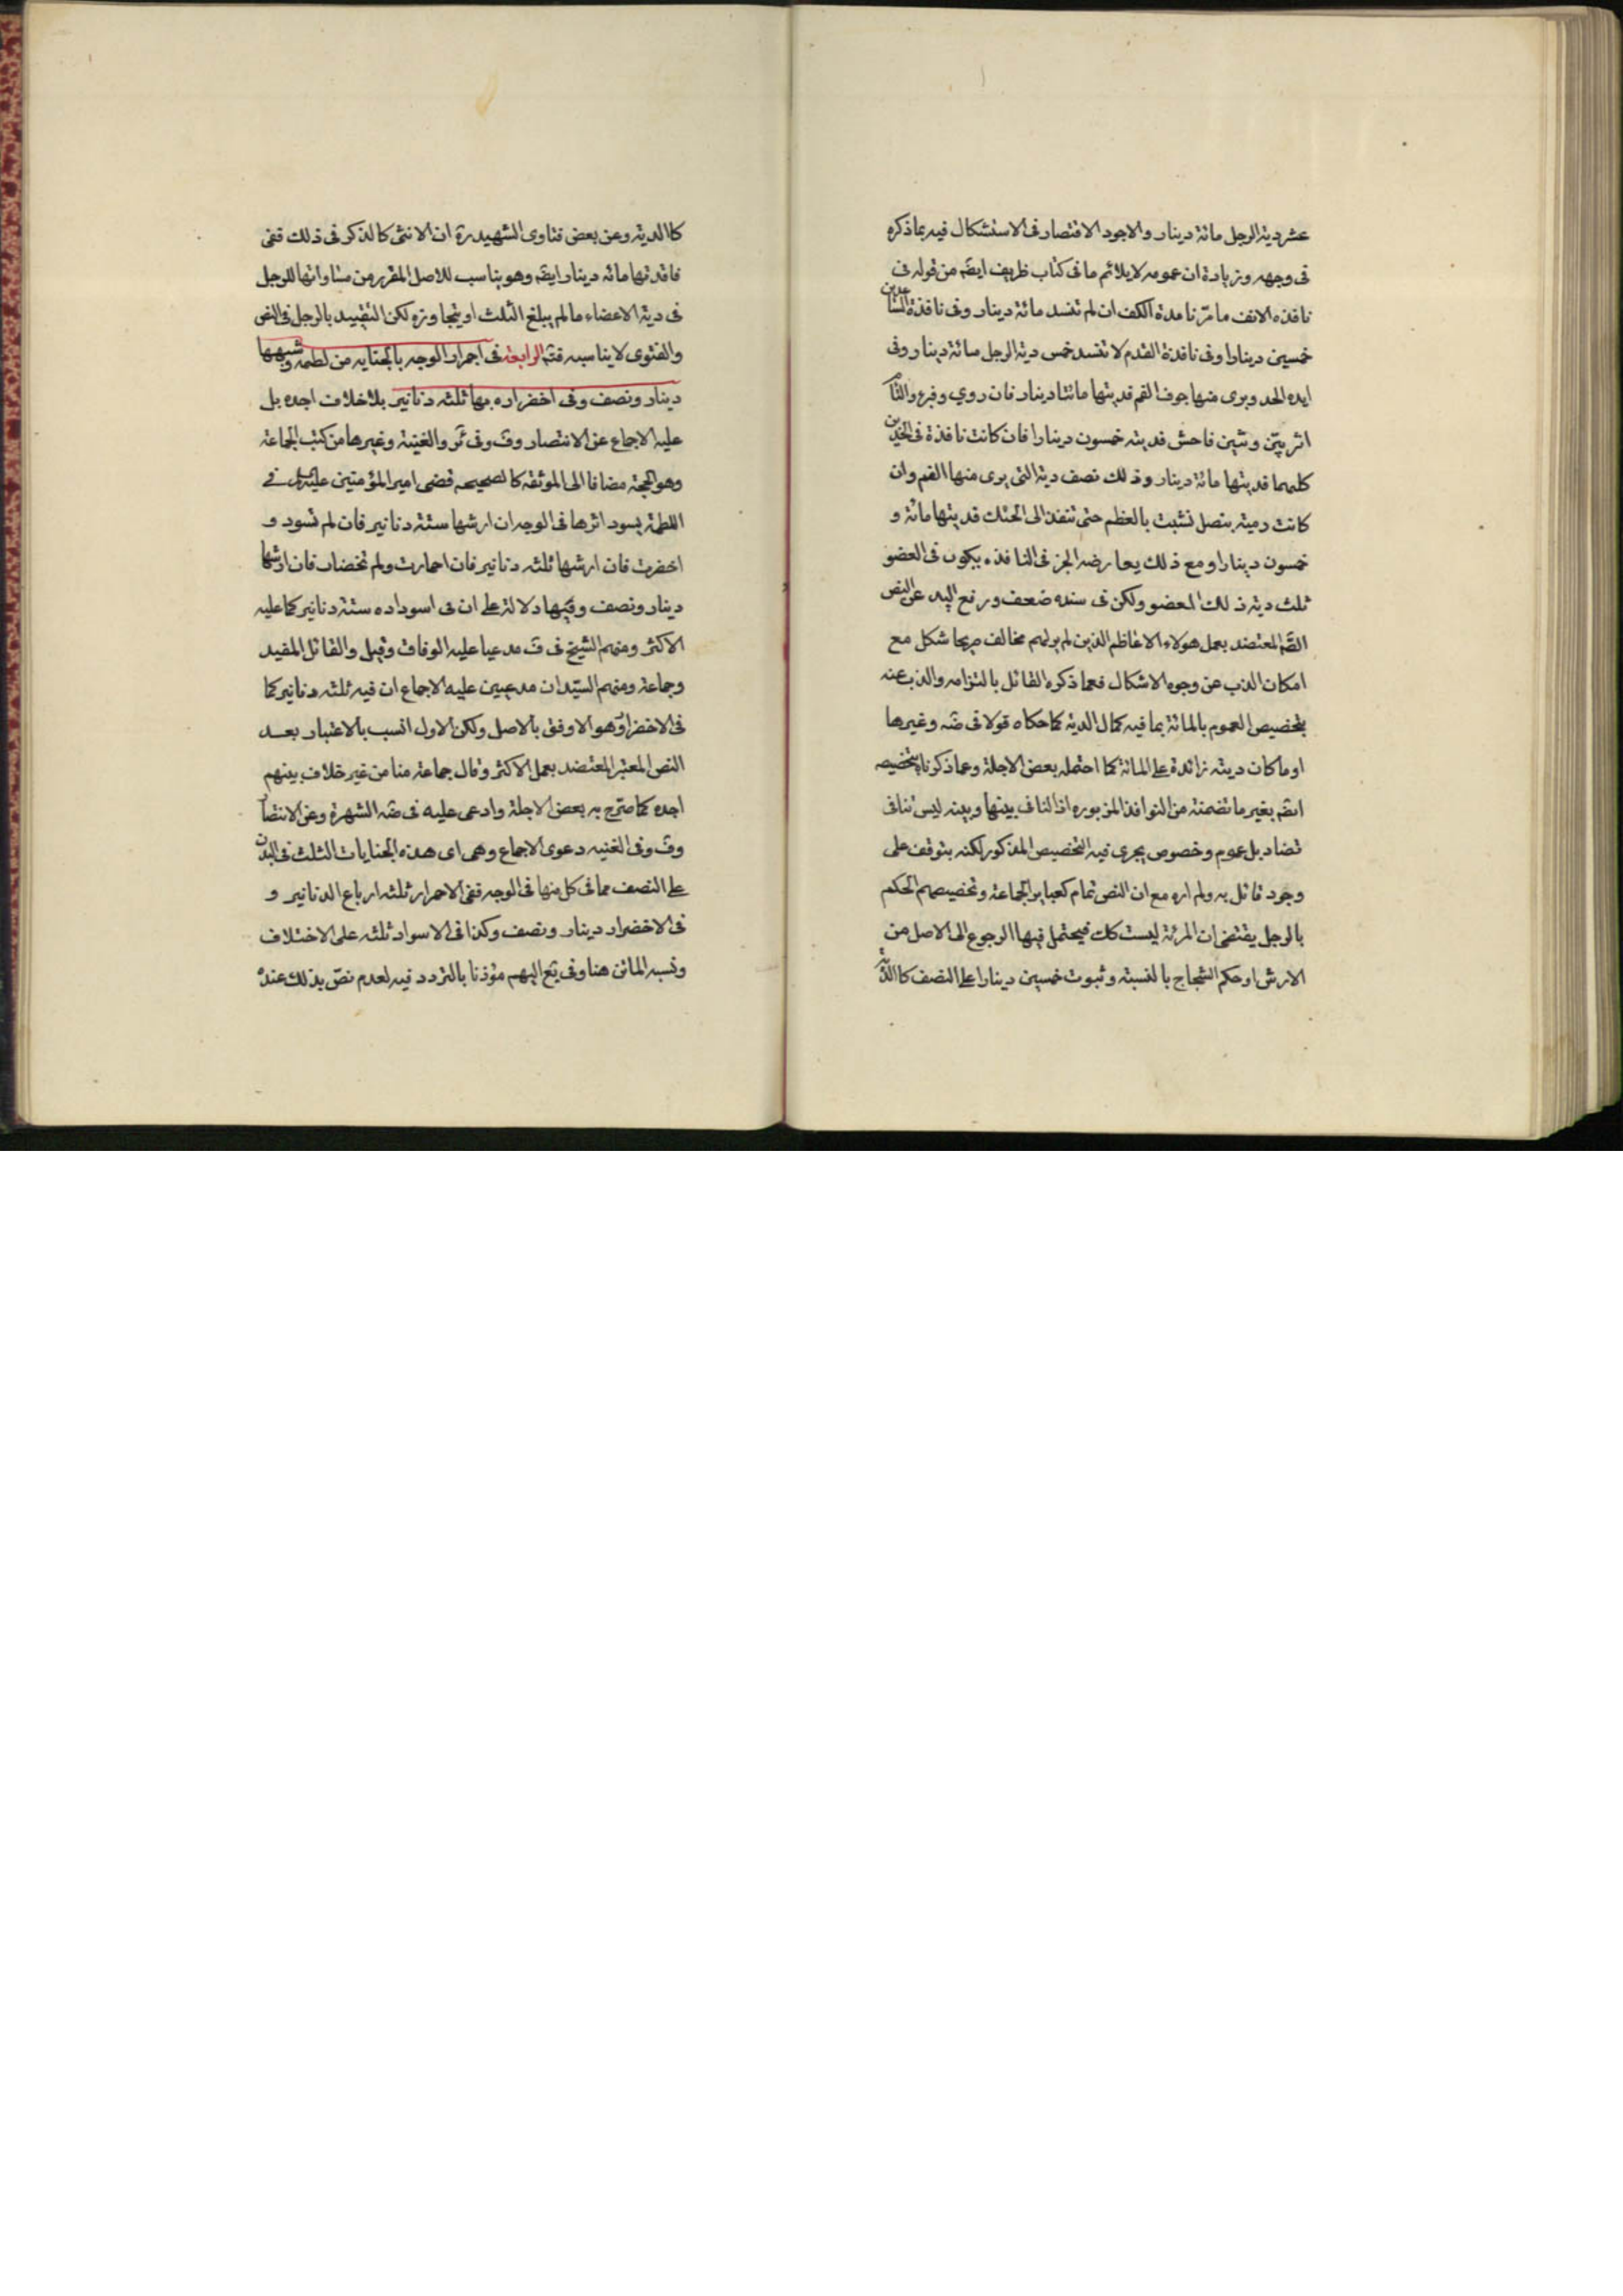 عشر دية الرجل مائة دينار والاجود الاقتصار فى الاستشكال فيه بما ذكره
فى وجهه وزيادة ان عمومه لا يلائم ما فى كتاب ظريف ايضم من قوله فى
نافذه الانف ما مرّ نافذة الكف ان لم تنسد مائة دينار وفى نافذة الساعدين
خمسين دينارا وفى نافذة القدم لا تنسد خمس دية الرجل مائة دينار وفى
الخد ويرى منها جوف الفم فديتها مائتا دينار فان روي وفبرء والتأم
اثر بيّن وشين فاحش فديته خمسون دينارا فان كانت نافذة فى الخدين
كليهما فديتها مائة دينار وذلك نصف دية التى يرى منها الفم وان
كانت رمية بنصل نشبت بالعظم حتى تنفذ الى الحنك فديتها مائة و
خمسون دينارا ومع ذلك يعارضه الخبر فى النافذه يكون فى العضو
ثلث دية ذلك العضو ولكن فى سنده ضعف ورفع اليد عن النص
المعتضد بعمل هولاء الاعاظم الذين لم ير لهم مخالف صريحا شكل مع
امكان الذب عن وجوه الاشكال فعما ذكره القائل بالتزامه والذب عنه
بتخصيص العموم بالمائة بما فيه كمال الديه كما حكاه قولا فى ضه وغيرها
او ما كان ديته زائدة على المائة كما احتمله بعض الاجلة وعما ذكرنا بتخصيصه
ايضم بغير ما تضمنته من النوافذ المزبوره اذ التنافى بينها وبينه ليس تنافى
تضاد بل عموم وخصوص يجرى فيه التخصيص المذكور لكنه يتوقف على
وجود قائل به ولم اره مع ان النص تمام كعباير الجماعة وتخصيصهم الحكم
بالرجل يقتضى ان المرئة ليست كك فيحتمل فيها الرجوع الى الاصل من
الارش او حكم الشجاج بالنسبته وثبوت خمسين دينارا على النصف كالديه
كاالديه وعن بعض فتاوى الشهيد رة ان الانثى كالذكر فى ذلك ففى
نافذتها مائه دينار ايضم وهو يناسب للاصل المقرر من مساواتها للرجل
فى دية الاعضاء ما لم يبلغ الثلث او يتجاوزه لكن التقييد بالرجل فى النص
والفتوى لا يناسبه فتم الرابعة فى احمرار الوجه بالجنايه من لطمه وشبهها
دينار ونصف وفى اخضراره بها ثلثه دنانير بلا خلاف اجده بل
عليه الاجماع عن الانتصار وف وفى ئر والغنية وغيرها من كتب الجماعة
وهو الحجة مضافا الى الموثقه كالصحيحه قضى امير المؤمنين عليه السلام فى
اللطمة يسود اثرها فى الوجه ان ارشها ستة دنانير فان لم تسود و
اخضرت فان ارشها ثلثه دنانير فان احمارت ولم تخضار فان ارشها
دينار ونصف وفيها دلالة على ان فى اسوداده ستة دنانير كما عليه
الاكثر ومنهم الشيخ فى ف مدعيا عليه الوفاق وقيل والقائل المفيد
وجماعة ومنهم السيّدان مدعيين عليه الاجماع ان فيه ثلثه دنانير كما
فى الاخضرار وهو الاوفق بالاصل ولكن الاول انسب بالاعتبار بعد
النص المعتبر المعتضد بعمل الاكثر وقال جماعة منا من غير خلاف بينهم
اجده كما صرّح به بعض الاجلة وادعى عليه فى ضه الشهرة وعن الانتصار
وف وفى الغنيه دعوى الاجماع وهى اى هذه الجنايات الثلث فى البدن
على النصف مما فى كل منها فى الوجه ففى الاحمرار ثلثه ارباع الدنانير و
فى الاخضرار دينار ونصف وكذا فى الاسواد ثلثه على الاختلاف
ونسبه الماتن هنا وفى يع اليهم مؤذنا بالتردد فيه لعدم نصّ بذلك عنده